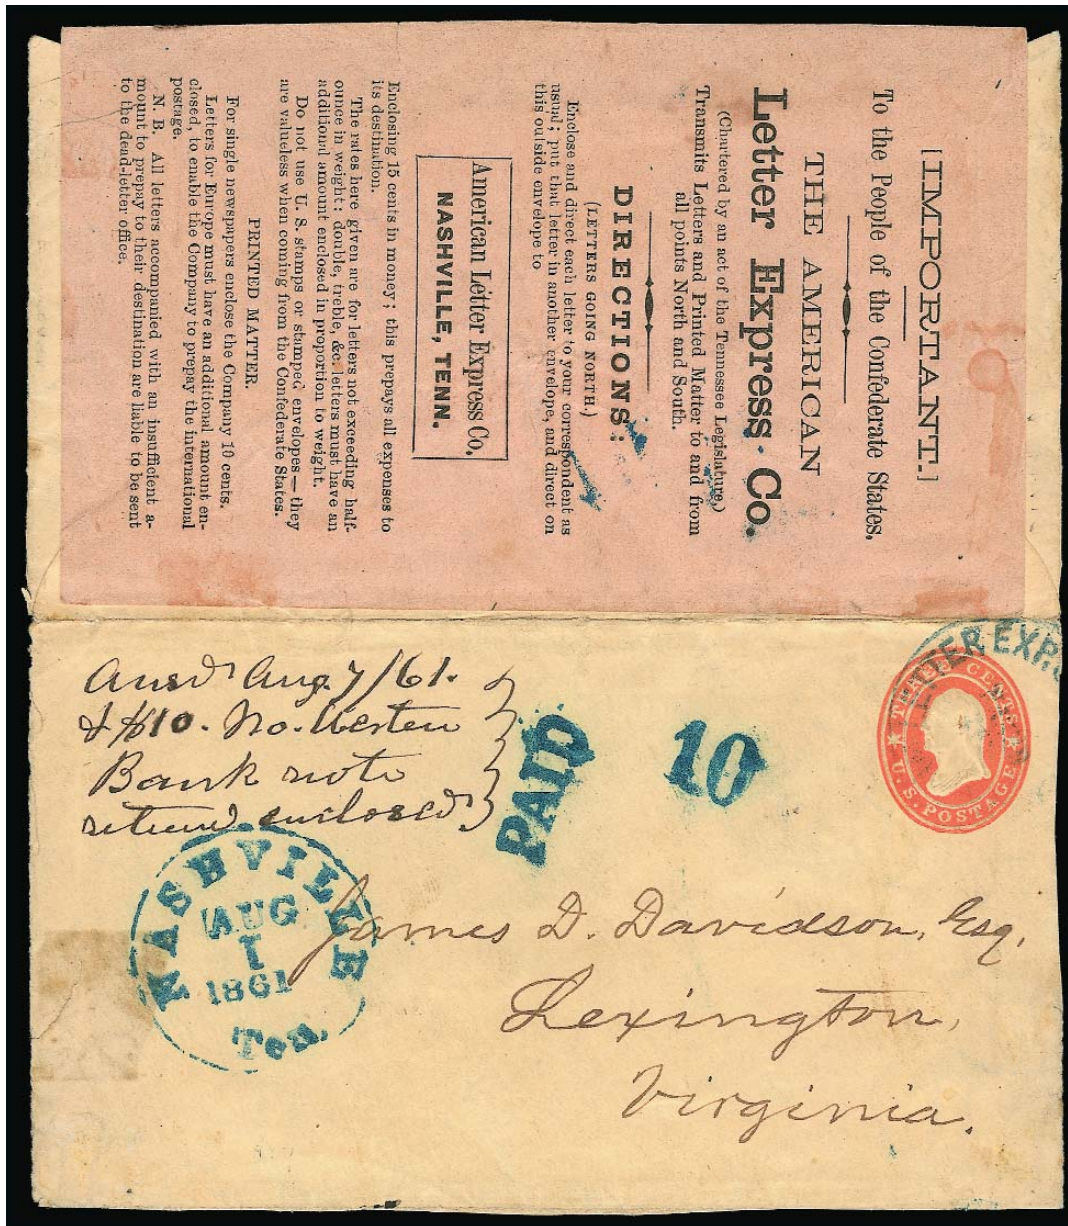 [IMPORTANT.]
To the People of the Confederate States.
THE AMERICAN
Letter Express Co.
(Chartered by an act of the Tennessee Legislature.)
Transmits Letters and Printed Matter to and from
all points North and South.
DIRECTIONS:
(LETTERS GOING NORTH.)
Enclose and direct each letter to your correspondent as
usual; put that letter in another envelope, and direct on
this outside envelope to
American Letter Express Co.
NASHVILLE, TENN.
Enclosing 15 cents in money; this prepays all expenses to
its destination.
The rates here given are for letters not exceeding half-
ounce in weight: double, treble, &c. letters must have an
additional amount enclosed in proportion to weight.
Do not use U. S. stamps or stamped envelopes—they
are valueless when coming from the Confederate States.
PRINTED MATTER.
For single newspapers enclose the Company 10 cents.
Letters for Europe must have an additional amount en-
closed, to enable the Company to prepay the international
postage.
N. B. All letters accompanied with an insufficient a-
mount to prepay to their destination are liable to be sent
to the dead-letter office.
Ansd Aug. 7/61.
& $10. No. Western
Bank note
returnd enclosed
PAID
10
LETTER EXP.
THREE CENTS
U.S. POSTAGE
NASHVILLE
AUG
1
1861
Ten.
James D. Davidson, Esq.
Lexington,
Virginia.